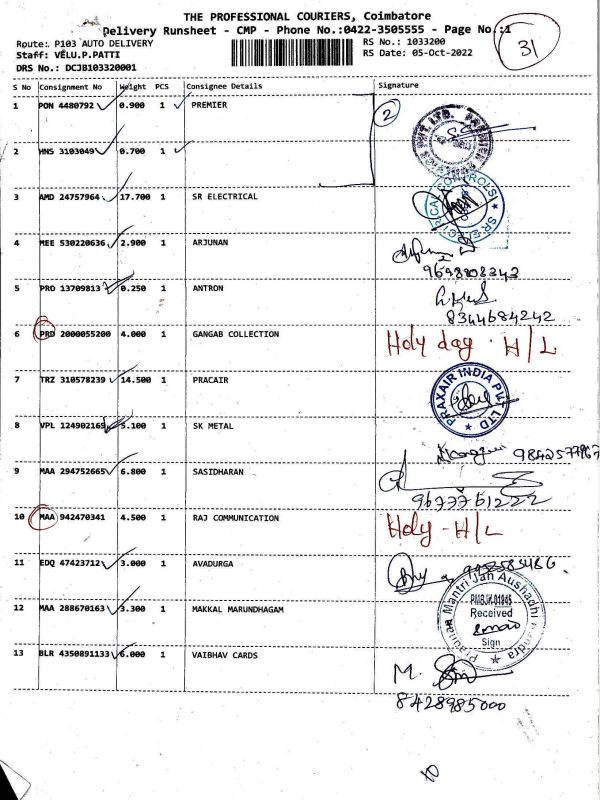 THE PROFESSIONAL COURIERS, Coimbatore
Delivery Runsheet - CMP - Phone No.:0422-3505555 - Page No.:1
31
Route: P103 AUTO DELIVERY
RS No.: 1033200
Staff: VELU.P.PATTI
RS Date: 05-Oct-2022
DRS No.: DCJB103320001
S No Consignment No Weight PCS Consignee Details Signature
1 PON 4480792 0.900 1 PREMIER 2
2 MNS 3103049 0.700 1
3 AMD 24757964 17.700 1 SR ELECTRICAL
4 MEE 530220636 2.900 1 ARJUNAN
5 PRO 13709813 0.250 1 ANTRON
8344684242
6 PRD 2000055200 4.000 1 GANGAB COLLECTION Holy day . H/L
7 TRZ 310578239 14.500 1 PRACAIR PRAXAIR INDIA PVT LTD
8 VPL 124902165 5.100 1 SK METAL
9 MAA 294752665 6.800 1 SASIDHARAN
10 MAA 942470341 4.500 1 RAJ COMMUNICATION Holy - H/L
11 EDQ 47423712 3.000 1 AVADURGA
12 MAA 288670163 3.300 1 MAKKAL MARUNDHAGAM Pradhan Mantri Jan Aushadhi Kendra
Received
Sign
13 BLR 4350891133 6.000 1 VAIBHAV CARDS M.
8428985000
10